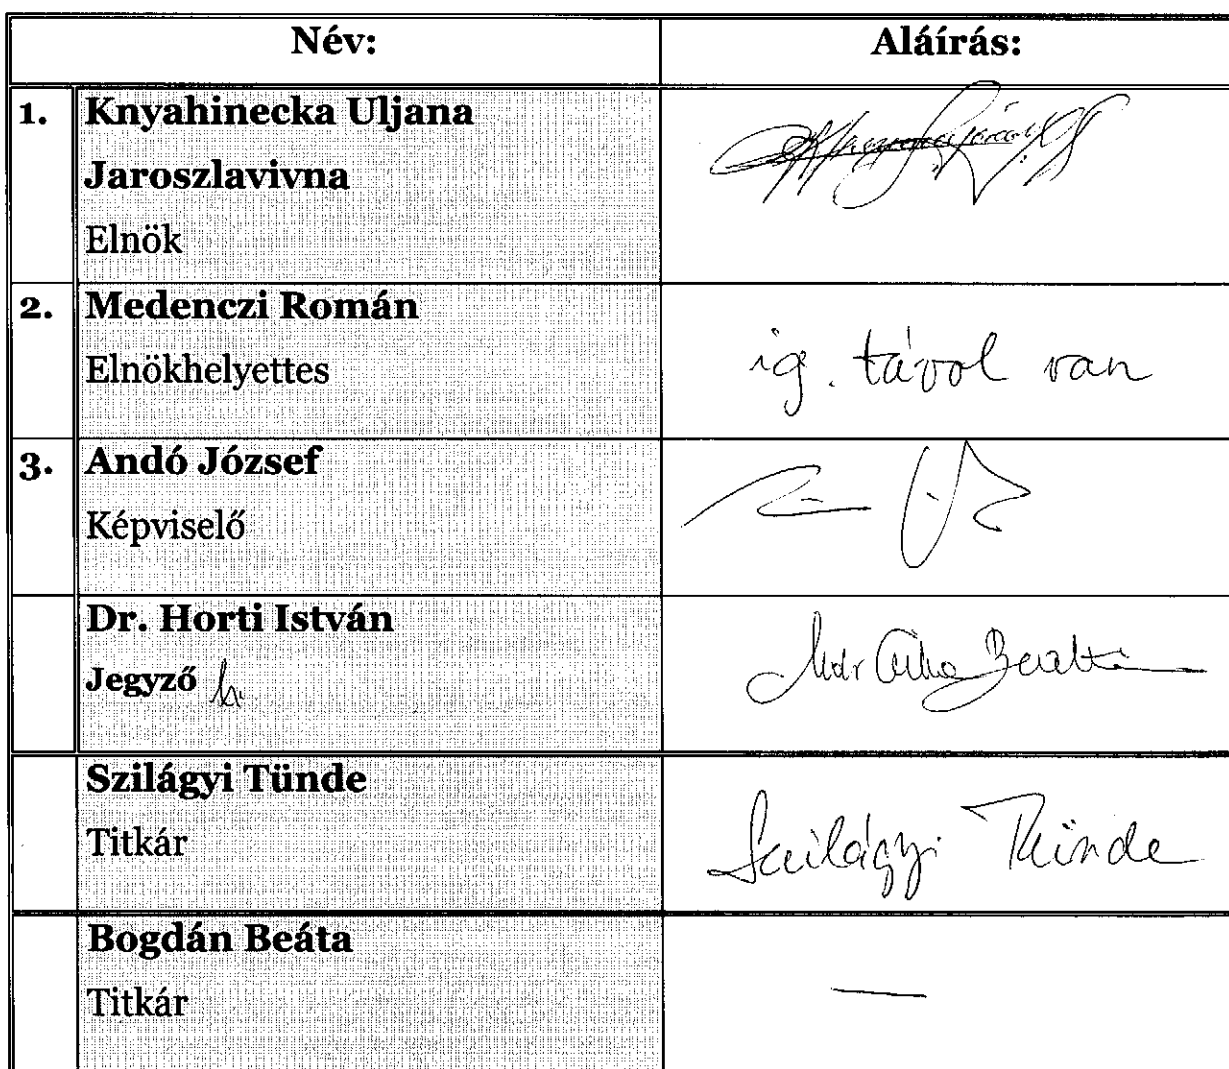 Név: Aláírás:
1. Knyahinecka Uljana
Jaroszlavivna
Elnök
2. Medenczi Román
Elnökhelyettes
ig. távol van
3. Andó József
Képviselő
Dr. Horti István
Jegyző
Szilágyi Tünde
Titkár
Szilágyi Tünde
Bogdán Beáta
Titkár
—